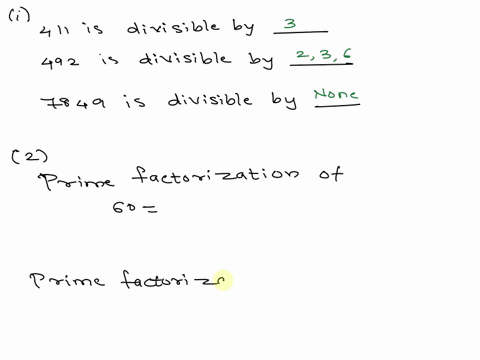 (i)
411 is divisible by 3
492 is divisible by 2,3,6
7849 is divisible by None
(2)
Prime factorization of
60 =
Prime factoriza